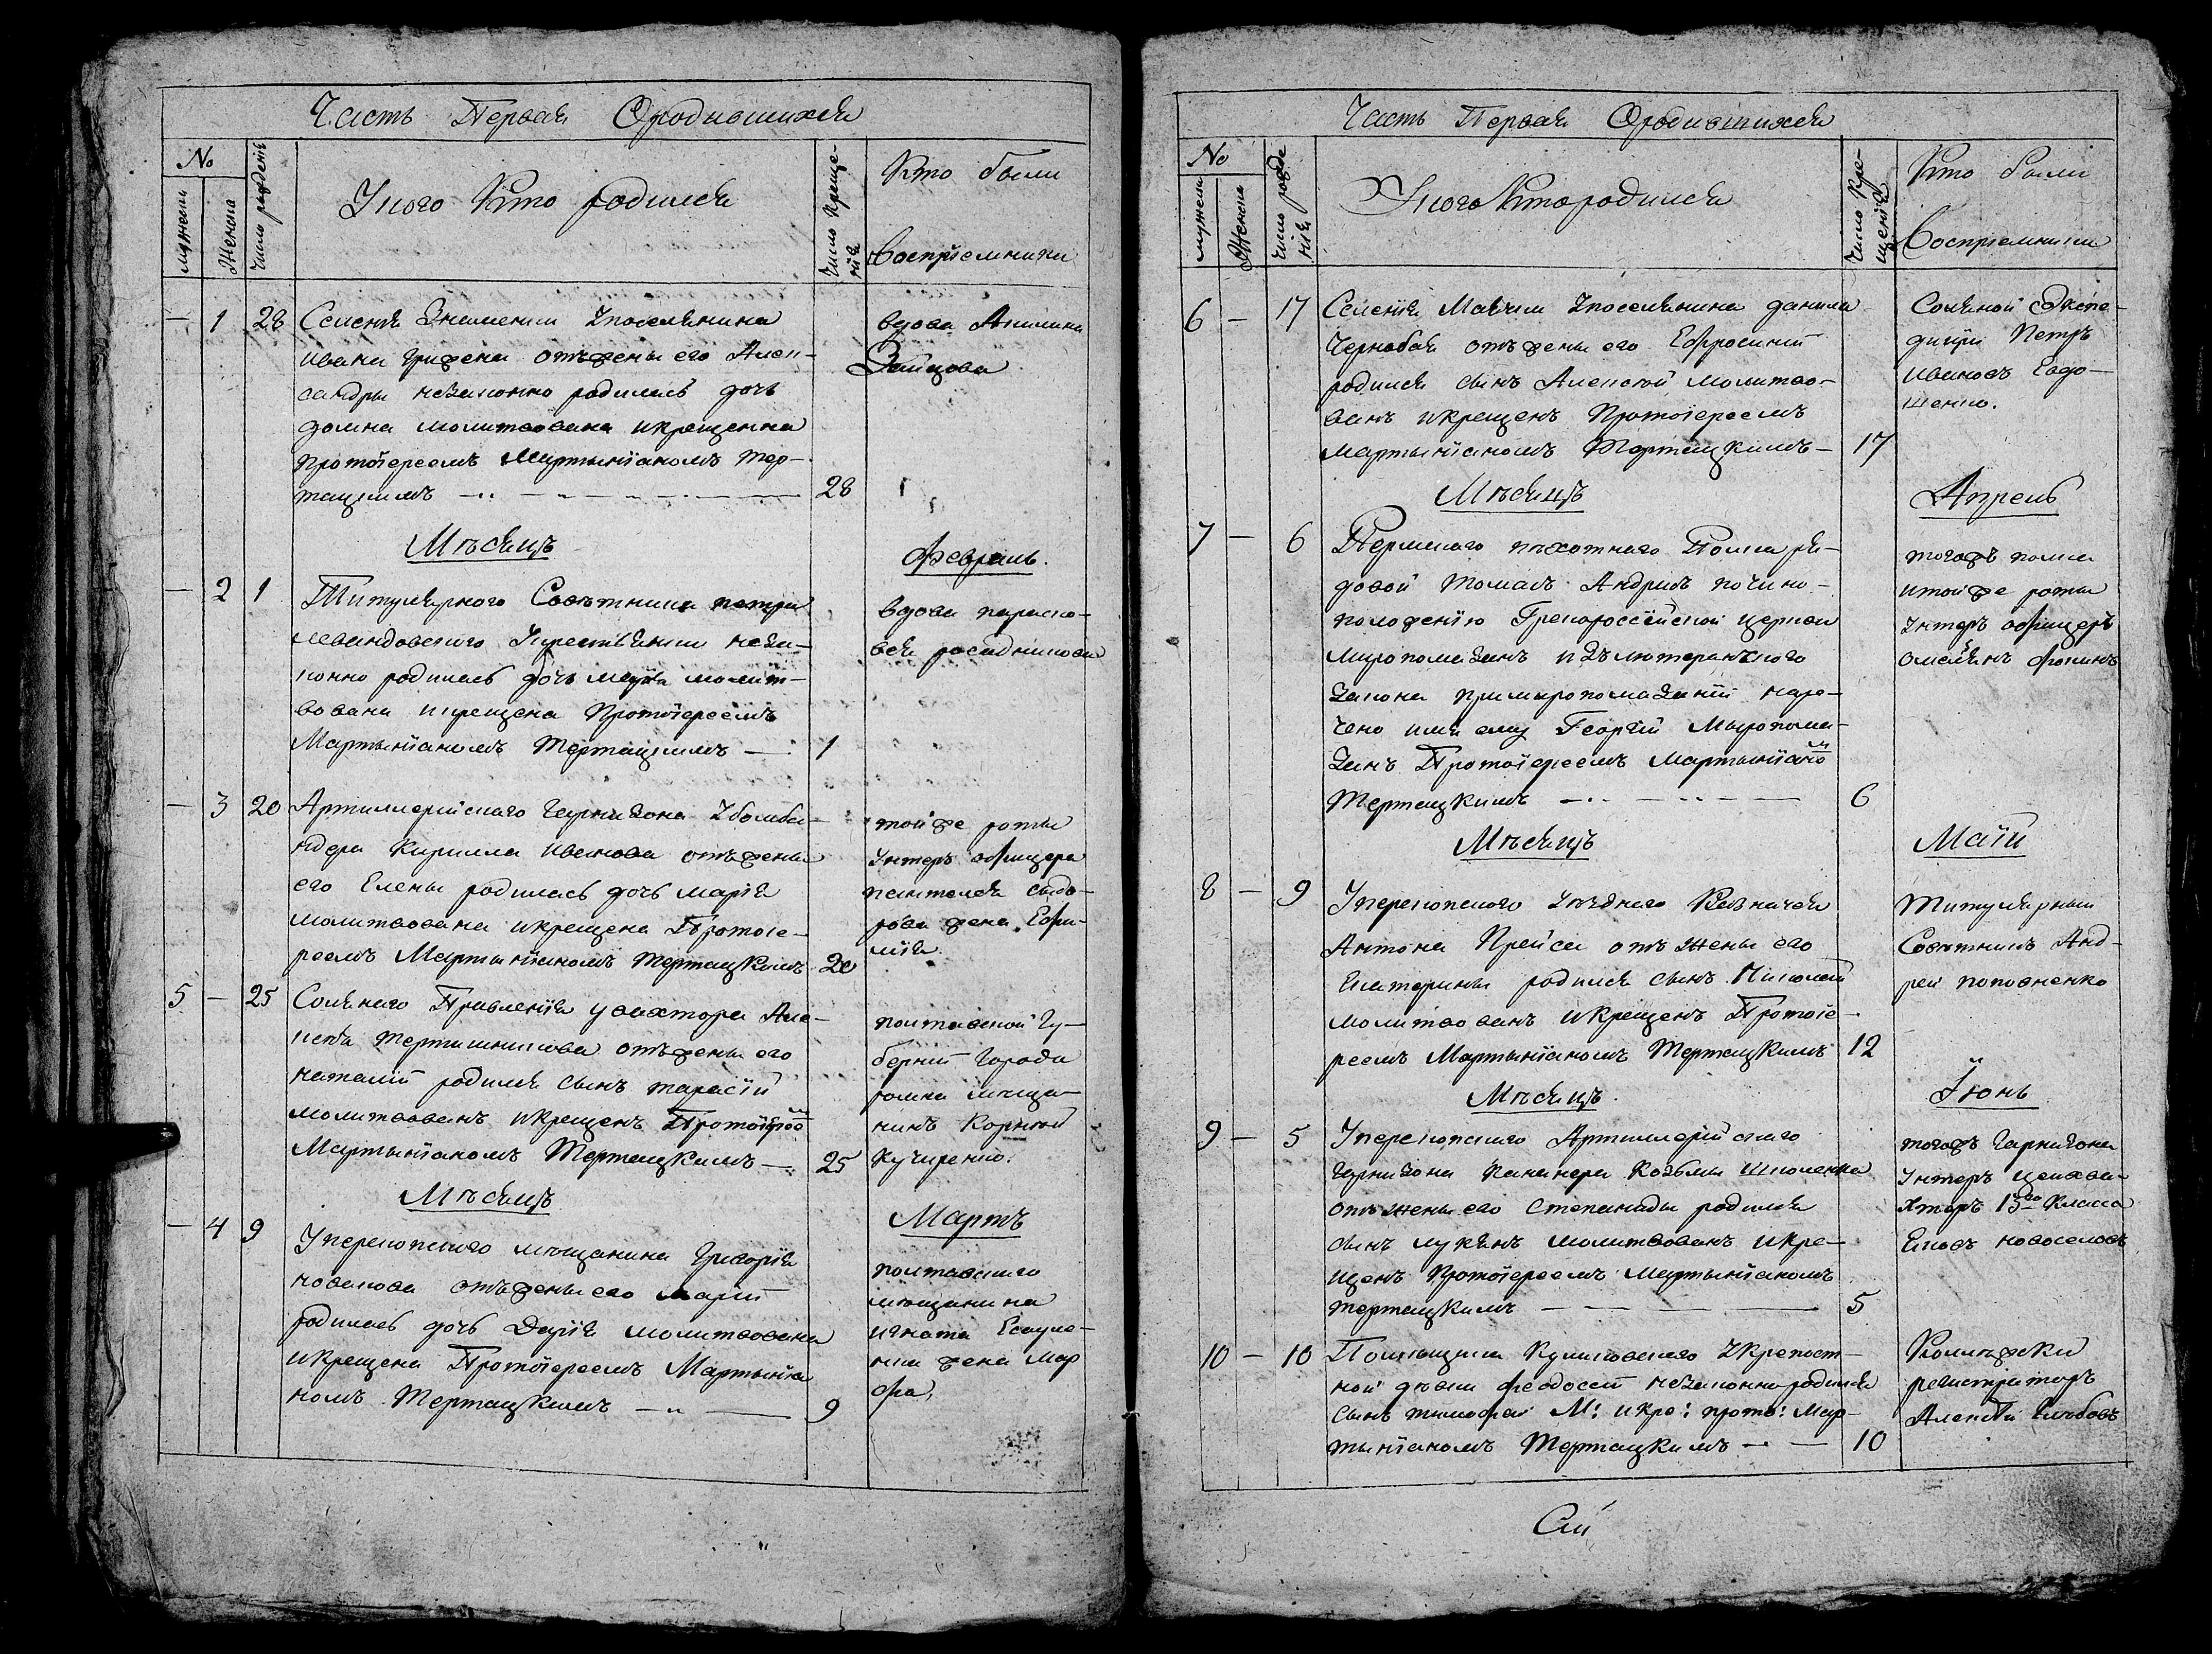 Часть Первая Ородившихся
№
мужеска
Женска
Число рожденія
Укого Кто родился
Число Креще-
нія
Кто были
Воспріемники
— 1 28 Селенія Знаменки Упоселянина
Ивана Гриженка отъжены его Алек-
сандры незаконно родилась дочь
домна молитвована икрещенна
протоіереемъ Мартыніаномъ Тер-
тацкимъ 28
вдова Акилина
Зайцова
Мѣсяцъ
Февраль.
— 2 1 Титулярного Совѣтника петра
левандовского Укрестьянки неза-
конно родилась дочь марѳа молит-
вована икрещена Протоіереемъ
Мартыніаномъ Тертацкимъ — 1
вдова параско-
вея расадникова
— 3 20 Артиллерійскаго Гарнизона Убомба-
ндера Кирилла Иванова отъжены
его Елены родилась дочь марія
молитвована икрещена Протоіе-
реемъ Мартыніаномъ Тертацкимъ 20
тойже роты
Унтеръ офицера
пантелея сидо-
рова жена Ефи-
мія
5 — 25 Солянаго Правленія увахтора Але-
ксѣя Тертишникова отъжены его
наталіи родился сынъ тарасій
молитвованъ икрещенъ Протоіерее м
Мартыніаномъ Тертацкимъ — 25
полтавской Гу-
берніи Города
ромна мѣща-
нинъ Корнѣй
Кучиренко.
Мѣсяцъ
Мартъ
— 4 9 Уперекопского мѣщанина Григорія
новакова отъжены его маріи
родилась дочь Дарія молитвована
икрещена Протоіереемъ Мартыніа
номъ Тертацкимъ — 9
полтавскаго
мѣщанина
игната Есауле-
нка жена Мар
фа,
Часть Первая Ородившихся
№
мужеска
Женска
Число рожде
нія
Укого Кто родился
Число Кре-
щенія
Кто были
Воспріемники
6 — 17 Селенія Мавчки Упоселянина данила
Чернобая отъжены его Ефросиніи
родился сынъ Алексѣй молитво-
ванъ икрещенъ Протоіереемъ
мартыніаномъ Тертацкимъ — 17
Соляной Экспе-
диціи Петръ
Ивановъ Евдо-
шенко.
Мѣсяцъ
Апрель
7 — 6 Пермскаго пѣхотнаго Полка ря-
довой томасъ Андрисъ почино-
положенію Грекороссійской церкви
миропомазанъ изълютеранского
закона примиропомазаніи наре-
чено имя ему Георгій Миропома-
занъ Протоіереемъ мартыніано м
Тертацкимъ — 6
тогожъ полка
итойже роты
Унтеръ офицеръ
омелянъ фокинъ
Мѣсяцъ
Маій
8 — 9 Уперекопского Уѣзднаго Казначея
Антона Прейса отъ жены его
Екатерины родился сынъ Николай
молитвованъ икрещенъ Протоіе-
реемъ Мартыніаномъ Тертацкимъ 12
Титулярный
Совѣтникъ Анд-
рей поповненко
Мѣсяцъ.
Іюнь
9 — 5 Уперекопскаго Артиллерійскаго
Гарнизона Канонера Козьмы Шполенка
отъ жены его Степаниды родился
сынъ лукянъ молитвованъ икре-
щенъ Протоіереемъ мартыніаномъ
тертацкимъ — 5
тогожъ Гарнизона
Унтеръ цейхва-
хтеръ 13го Класса
Ековъ новоселовъ
10 — 10 Помѣщика Куликовского Укрепост-
ной дѣвки феодосіи незаконно родился
сынъ тимофей М: икре: прото: Мар-
тыніаномъ Тертацкимъ — 10
Коллѣжски
регистраторъ
Алексѣй Глѣбовъ